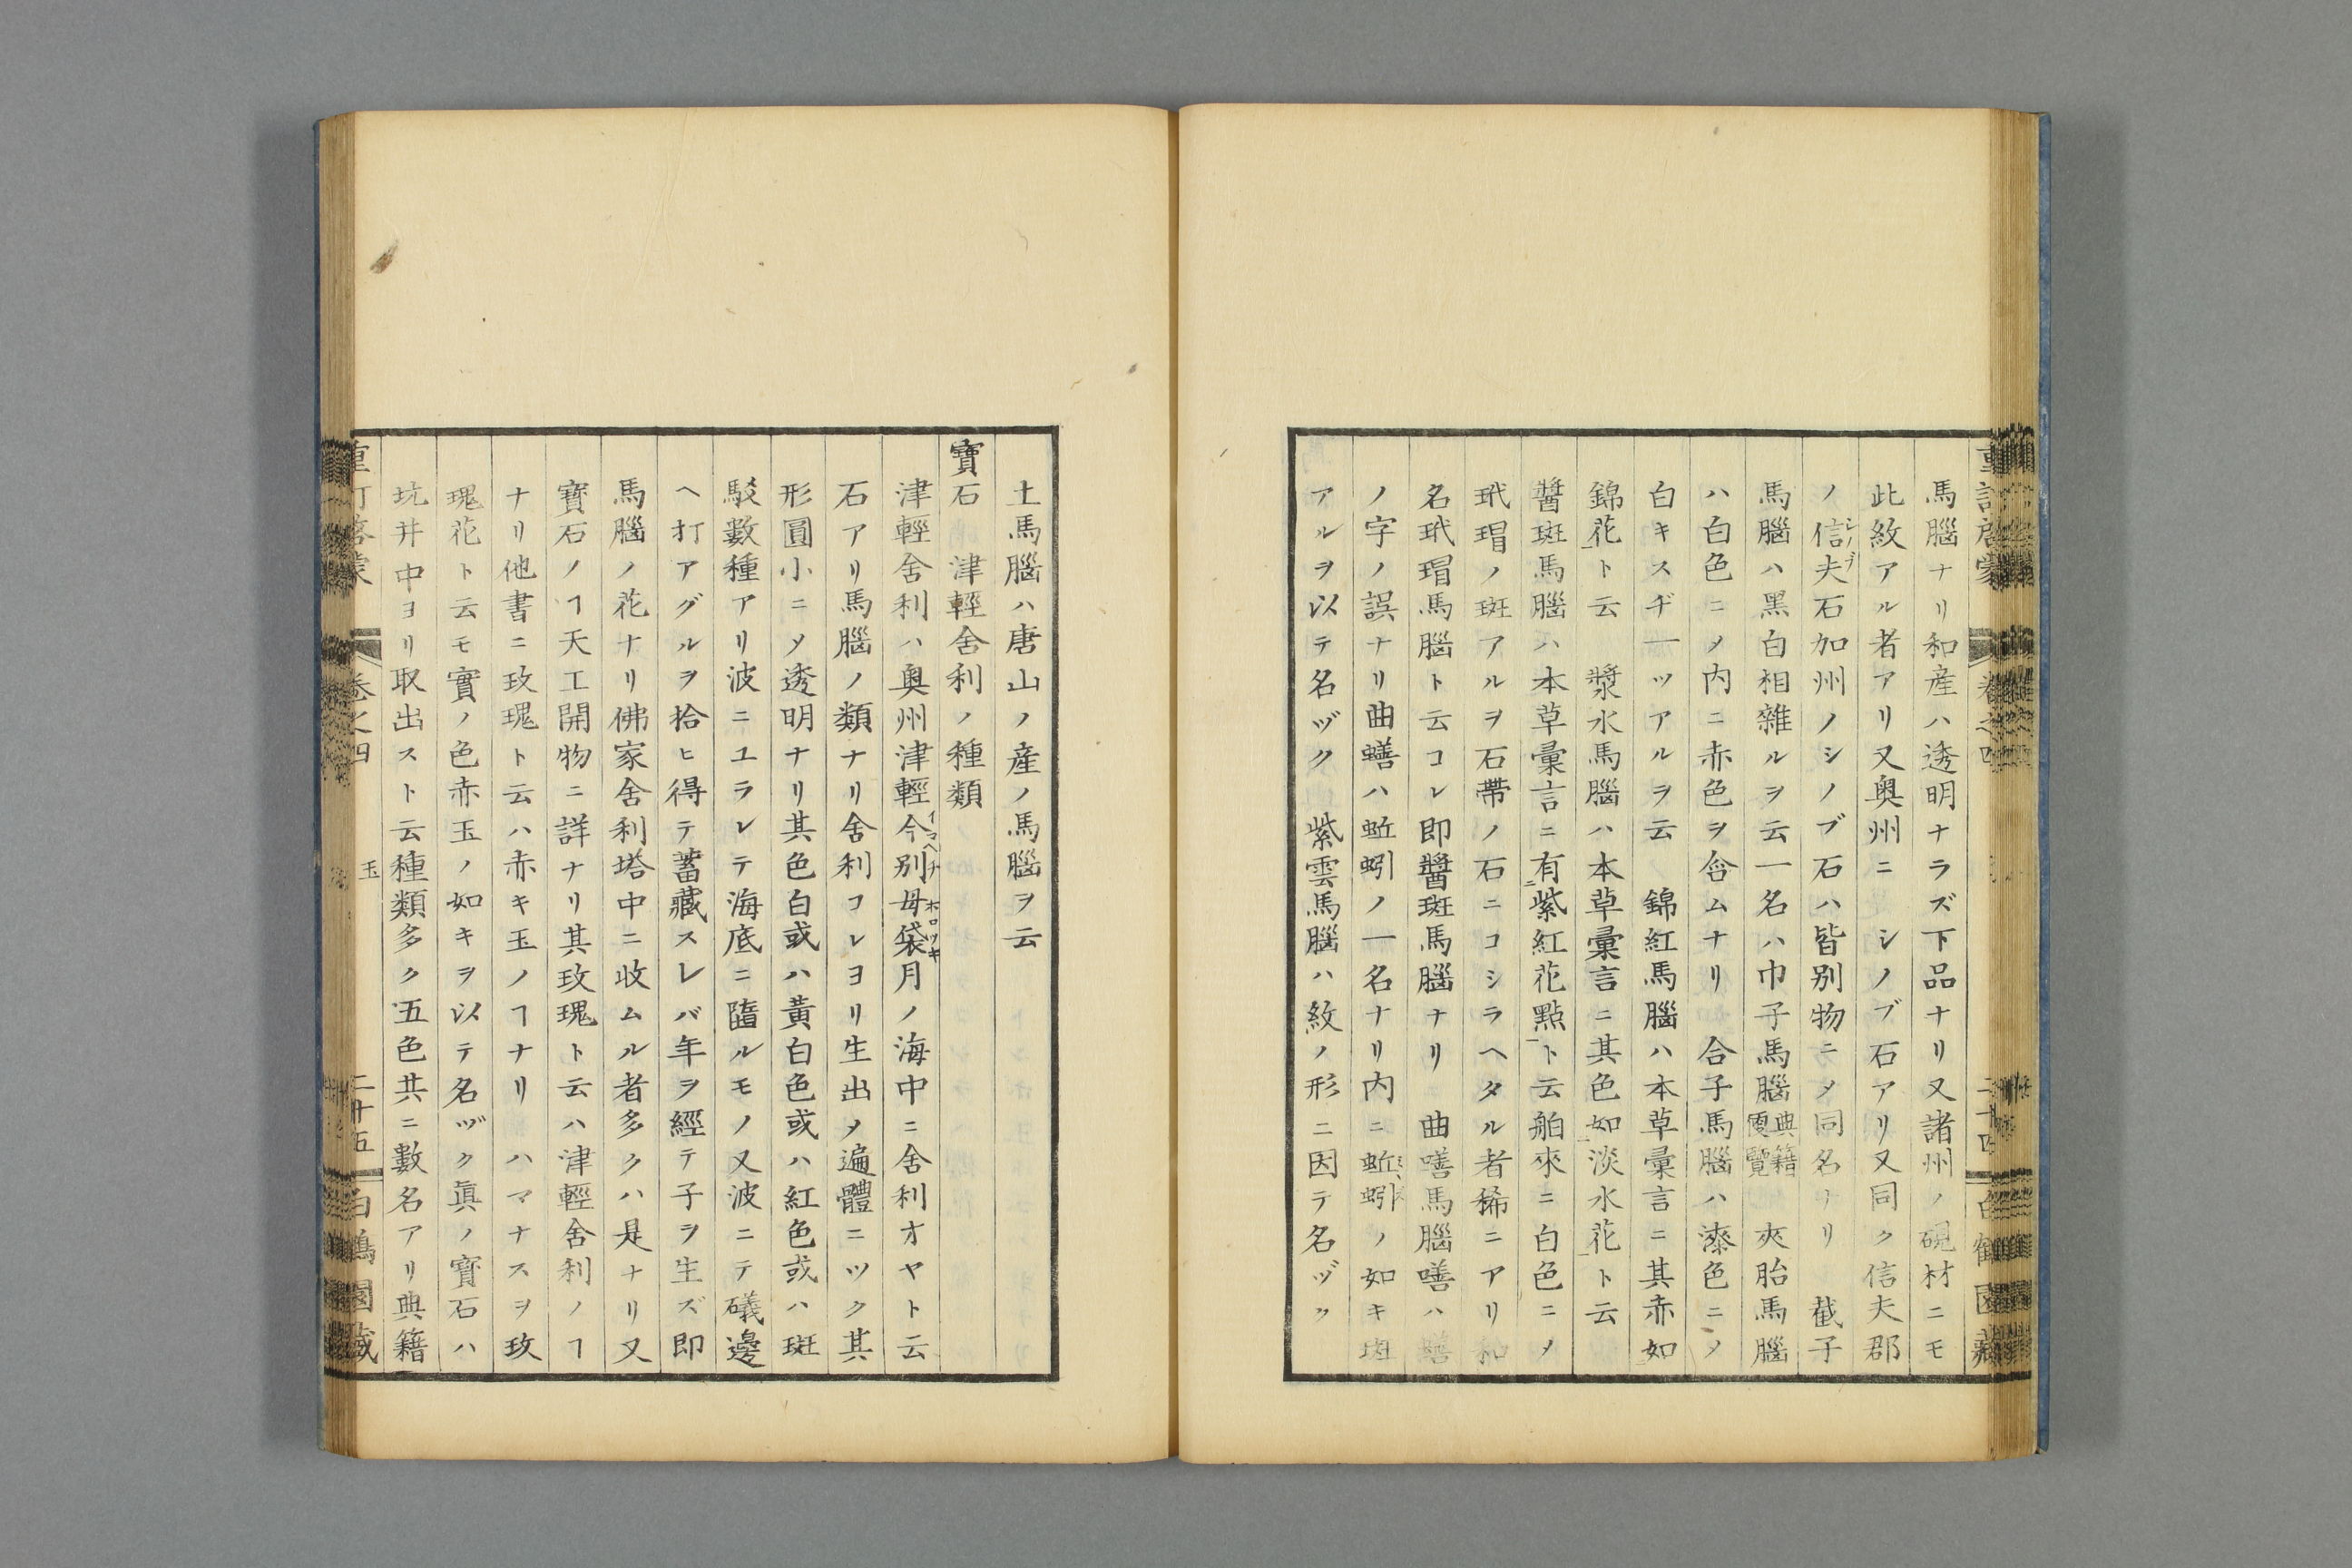 馬腦ナリ和産ハ透明ナラズ下品ナリ又諸州ノ硯材ニモ
此紋アル者アリ又奥州ニシノブ石アリ又同ク信夫郡
ノ信夫石加州ノシノブ石ハ皆別物ニ〆同名ナリ 截子
馬腦ハ黒白相雜ルヲ云一名ハ巾子馬腦典籍便覽 夾胎馬腦
ハ白色ニ〆内ニ赤色ヲ含ムナリ 合子馬腦ハ漆色ニ〆
白キスヂ一ツアルヲ云 錦紅馬腦ハ本草彙言ニ其赤如
錦花ト云 漿水馬腦ハ本草彙言ニ其色如淡水花ト云
醬斑馬腦ハ本草彙言ニ有紫紅花點ト云舶來ニ白色ニ〆
玳瑁ノ斑アルヲ石帶ノ石ニコシラヘタル者稀ニアリ和
名玳瑁馬腦ト云コレ即醬斑馬腦ナリ 曲嘻馬腦嘻ハ蟮
ノ字ノ誤ナリ曲蟮ハ蚯蚓ノ一名ナリ内ニ蚯蚓ノ如キ斑
アルヲ以テ名ヅク 紫雲馬腦ハ紋ノ形ニ因テ名ヅク
土馬腦ハ唐山ノ産ノ馬腦ヲ云
寶石 津輕舎利ノ種類
津輕舎利ハ奥州津輕今別母袋月ノ海中ニ舎利オヤト云
石アリ馬腦ノ類ナリ舎利コレヨリ生出〆遍體ニツク其
形圓小ニ〆透明ナリ其色白或ハ黄白色或ハ紅色或ハ斑
駁數種アリ波ニユラレテ海底ニ隨ルモノ又波ニテ礒邊
ヘ打アグルヲ拾ヒ得テ蓄藏スレバ年ヲ經テ子ヲ生ズ即
馬腦ノ花ナリ佛家舎利塔中ニ收ムル者多クハ是ナリ又
寶石ノヿ天工開物ニ詳ナリ其玫瑰ト云ハ津輕舎利ノヿ
ナリ他書ニ玫瑰ト云ハ赤キ玉ノヿナリ ハマナスヲ玫
瑰花ト云モ實ノ色赤玉ノ如キヲ以テ名ヅク眞ノ寶石ハ
坑井中ヨリ取出スト云種類多ク五色共ニ數名アリ典籍
玉
二十五